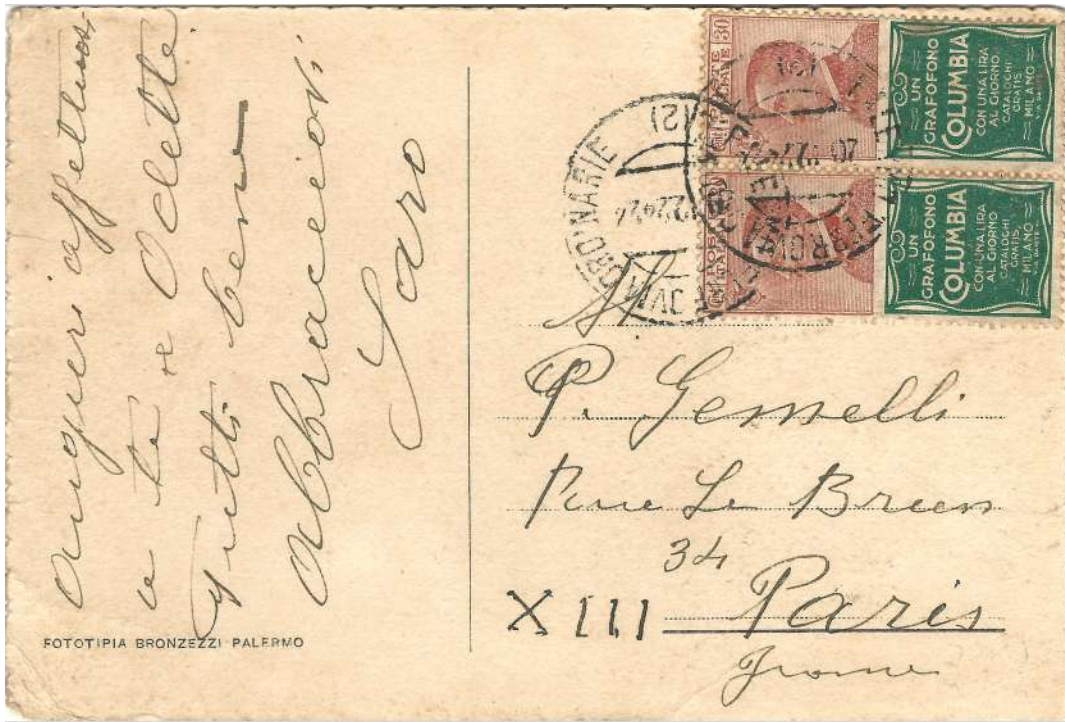 augueri affettuosi
a te e Odette
Tutti bene
Abbraccioni
Saro
FOTOTIPIA BRONZEZZI PALERMO
30
UN
GRAFOFONO
COLUMBIA
CON UNA LIRA
AL GIORNO
CATALOGHI
GRATIS
MILANO
VIA DANTE
UN
GRAFOFONO
COLUMBIA
CON UNA LIRA
AL GIORNO
CATALOGHI
GRATIS
MILANO
VIA DANTE
ORDINARIE
(2)
FERROVIA
P. Gemelli
Rue Le Bruen
34
XIII Paris
France